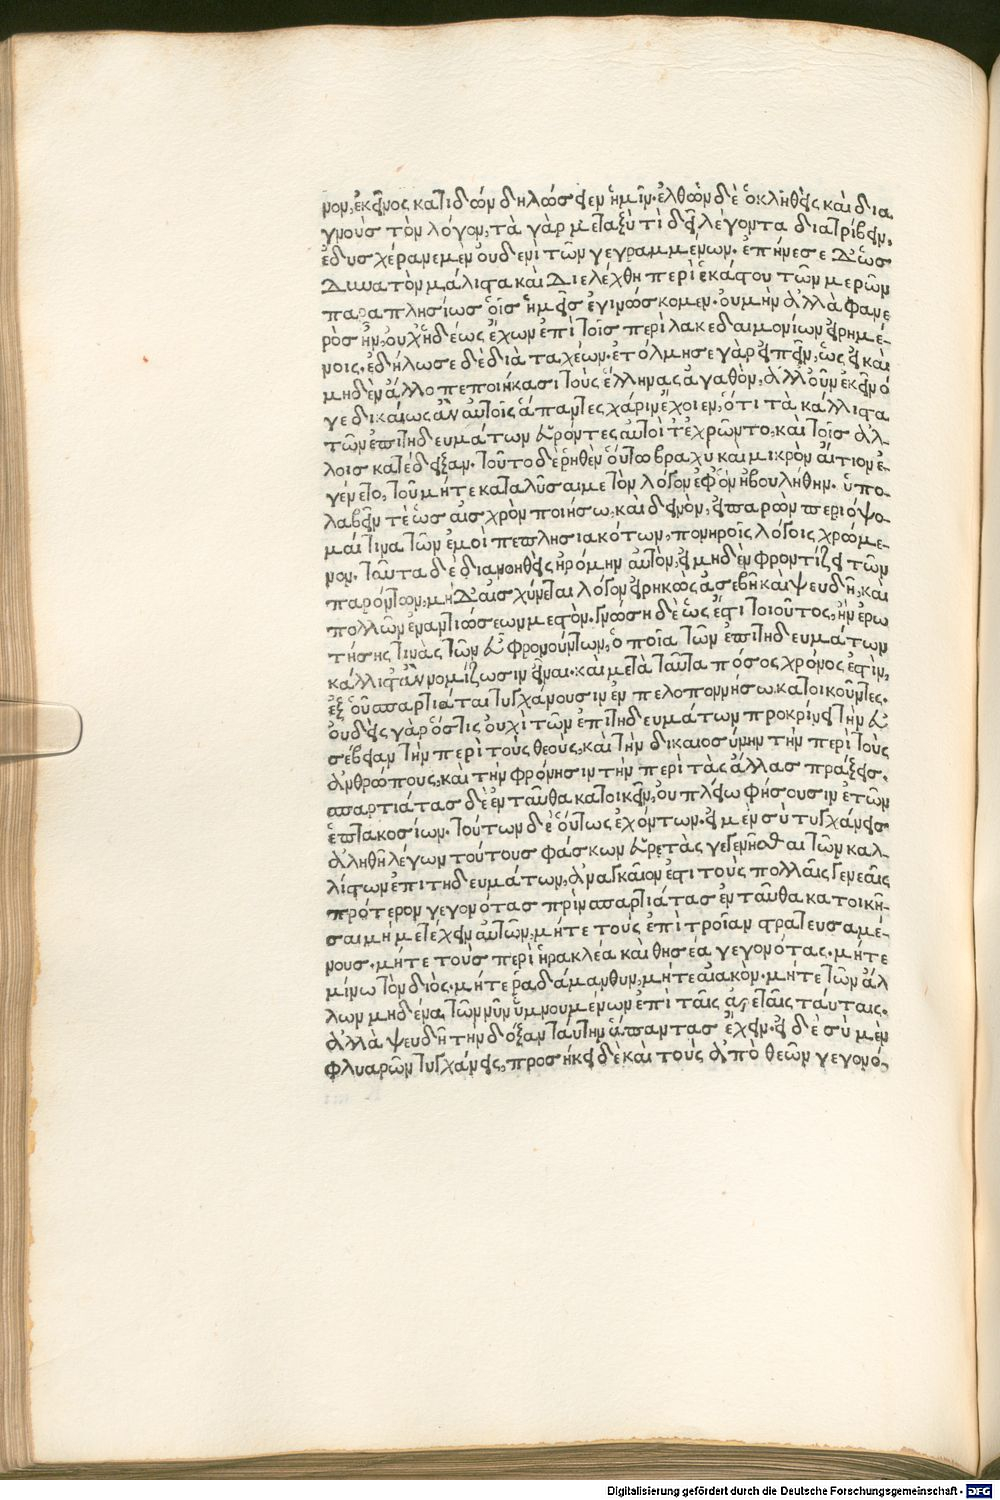 νον, ἐκεῖνος κατιδὼν δηλώσειεν ἡμῖν. ἐλθὼν δὲ ὁ κληθεὶς καὶ δια
γνοὺς τὸν λόγον, τὰ γὰρ μεταξὺ τί δεῖ λέγοντα διατρίβειν,
ἐδυσχέρανε μὲν οὐδενὶ τῶν γεγραμμένων. ἐπήνεσε δ' ὡς
δυνατὸν μάλιστα καὶ διελέχθη περὶ ἑκάστου τῶν μερῶν
παραπλησίως οἷς ἡμεῖς ἐγινώσκομεν. οὐ μὴν ἀλλὰ φανε
ρὸς ἦν, οὐχ ἡδέως ἔχων ἐπὶ τοῖς περὶ λακεδαιμονίων εἰρημέ-
νοις. ἐδήλωσε δὲ διὰ ταχέων. ἐτόλμησε γὰρ εἰπεῖν, ὡς εἰ καὶ
μηδὲν ἄλλο πεποιήκασι τοὺς ἕλληνας ἀγαθὸν, ἀλλ' οὖν ἐκεῖνό
γε δικαίως ἂν αὐτοῖς ἅπαντες χάριν ἔχοιεν, ὅτι τὰ κάλλιστα
τῶν ἐπιτηδευμάτων εὑρόντες αὐτοί τ' ἐχρῶντο, καὶ τοῖς ἄλ-
λοις κατέδειξαν. τοῦτο δὲ ῥηθὲν οὕτω βραχὺ καὶ μικρὸν αἴτιον ἐ-
γένετο, τοῦ μήτε καταλῦσαί με τὸν λόγον ἐφ' ὃν ἠβουλήθην. ὑπο-
λαβεῖν τὲ ὡς αἰσχρὸν ποιήσω, καὶ δεινὸν, εἰ παρὼν περιόψο-
μαί τινα τῶν ἐμοὶ πεπλησιακότων, πονηροῖς λόγοις χρώμε-
νον. ταῦτα δὲ διανοηθεὶς ἠρόμην αὐτὸν, εἰ μηδὲν φροντίζει τῶν
παρόντων, μὴ δ' αἰσχύνεται λόγον εἰρηκὼς ἀσεβῆ καὶ ψευδῆ, καὶ
πολλῶν ἐναντιώσεων μεστόν. γνώσῃ δὲ ὡς ἔστι τοιοῦτος, ἢν ἐρω
τήσῃς τινὰς τῶν εὖ φρονούντων, ὁποῖα τῶν ἐπιτηδευμάτων
κάλλιστ' ἂν νομίζωσιν εἶναι. καὶ μετὰ ταῦτα πόσος χρόνος ἐστὶν,
ἐξ οὗ σπαρτιάται τυγχάνουσιν ἐν πελοποννήσω κατοικοῦντες.
οὐδεὶς γὰρ ὅστις οὐχὶ τῶν ἐπιτηδευμάτων προκρίνει τὴν εὐ
σέβειαν τὴν περὶ τοὺς θεους, καὶ τὴν δικαιοσύνην τὴν περὶ τοὺς
ἀνθρώπους, καὶ τὴν φρόνησιν τὴν περὶ τὰς ἄλλας πράξεις.
σπαρτιάτας δὲ ἐνταῦθα κατοικεῖν, οὐ πλείω φήσουσιν ἐτῶν
ἑπτακοσίων. τούτων δὲ οὕτως ἐχόντων. εἰ μὲν σὺ τυγχάνεις
ἀληθῆ λέγων τούτους φάσκων εὑρετὰς γεγενῆσθαι τῶν καλ-
λίστων ἐπιτηδευμάτων, ἀναγκαῖον ἐστι τοὺς πολλαῖς γενεαῖς
πρότερον γεγονότας πρὶν σπαρτιάτας ἐνταῦθα κατοικῆ-
σαι μὴ μετέχειν αὐτῶν, μήτε τοὺς ἐπὶ τροῖαν στρατευσαμέ-
νους. μήτε τοὺς περὶ ἡρακλέα καὶ θησέα γεγονότας. μήτε
μίνω τὸν διὸς. μήτε ῥαδάμανθυν, μήτε αἰακὸν. μήτε τῶν ἄλ
λων μηδένα, τῶν νῦν ὑμνουμένων ἐπὶ ταῖς ἀρεταῖς ταύταις.
ἀλλὰ ψευδῆ τὴν δόξαν ταύτην ἅπαντας ἔχειν. εἰ δὲ σὺ μὲν
φλυαρῶν τυγχάνεις, προσήκει δὲ καὶ τοὺς ἀπὸ θεῶν γεγονό-
Digitalisierung gefördert durch die Deutsche Forschungsgemeinschaft - DFG